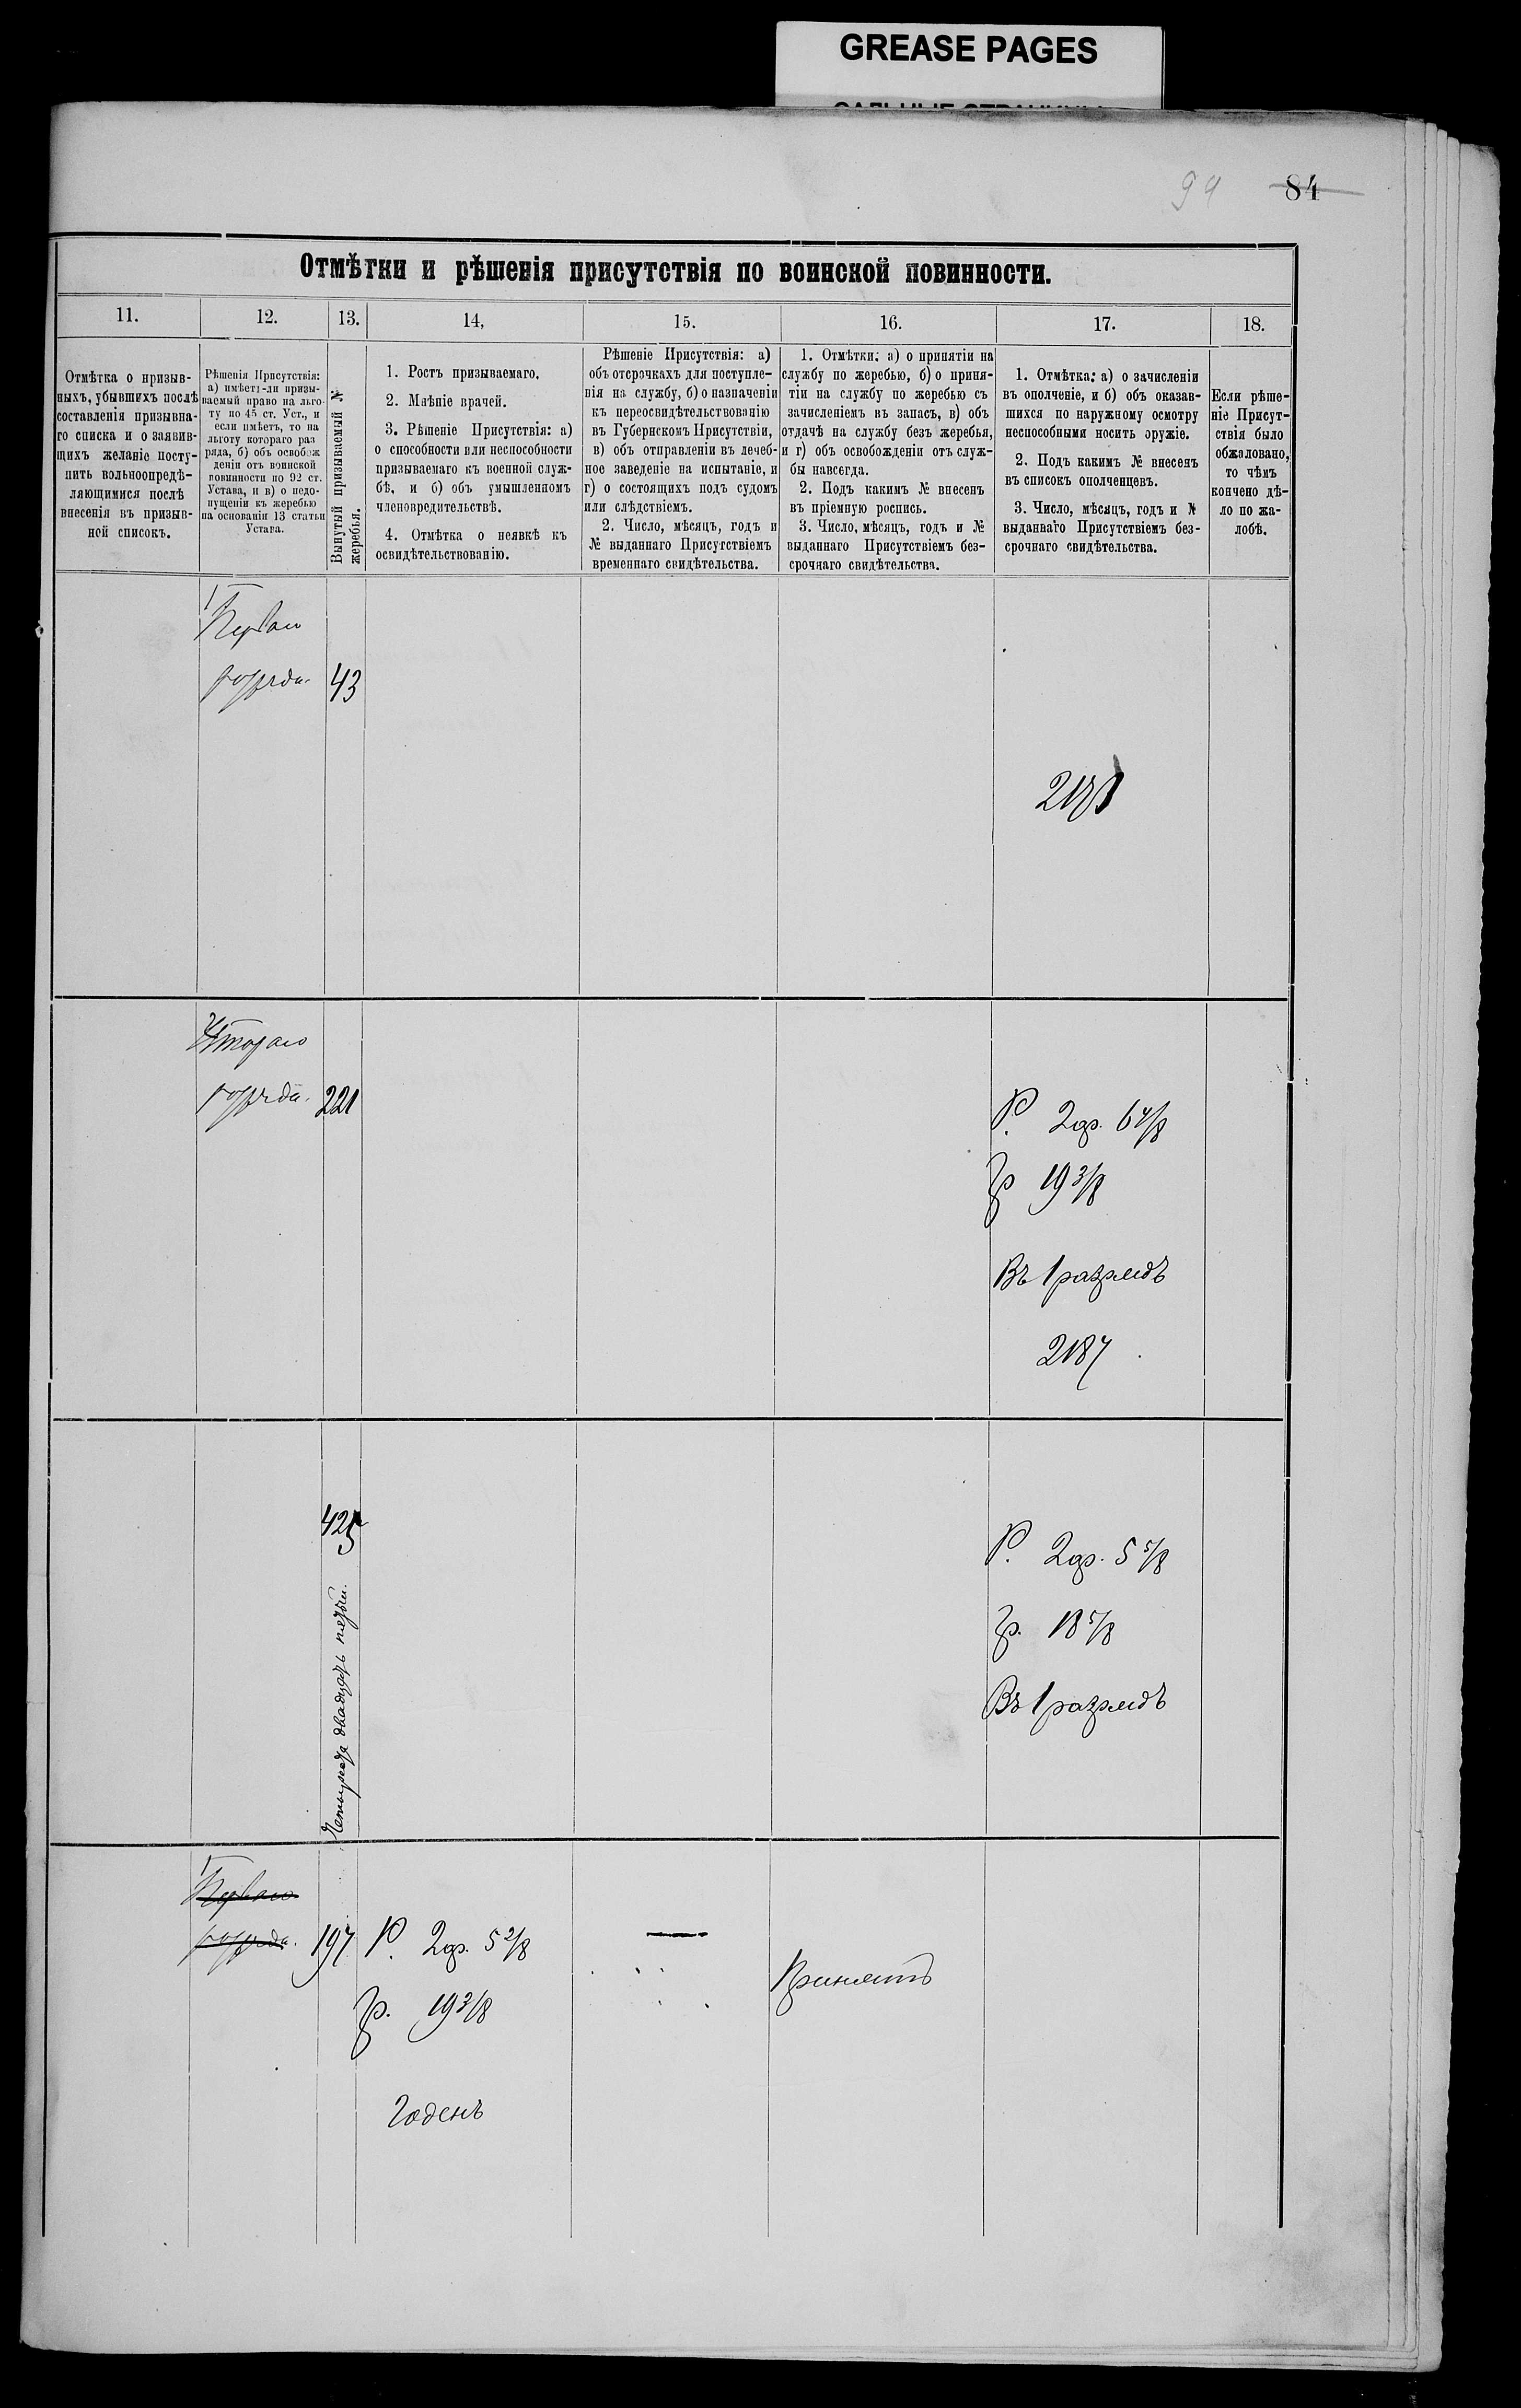 GREASE PAGES
94 84
Отмѣтки и рѣшенія присутствія по воинской повинности.
11. 12. 13. 14, 15. 16. 17. 18.
Отмѣтка о призыв-
ныхъ, убывшихъ послѣ
составленія призывна-
го списка и о заявив-
щихъ желаніе посту-
пить вольноопредѣ-
ляющимися послѣ
внесенія въ призыв-
ной списокъ.
Рѣшенія Присутствія:
а) имѣетъ-ли призы-
ваемый право на льго-
ту по 45 ст. Уст., и
если имѣетъ, то на
льготу котораго раз
ряда, б) объ освобож
деніи отъ воинской
повинности по 92 ст.
Устава, и в) о недо-
пущеніи къ жеребью
на основаніи 13 статьи
Устава.
Вынутый призываемый №
жеребья.
1. Ростъ призываемаго.
2. Мнѣніе врачей.
3. Рѣшеніе Присутствія: а)
о способности или неспособности
призываемаго къ военной служ-
бѣ, и б) объ умышленномъ
членовредительствѣ.
4. Отмѣтка о неявкѣ къ
освидѣтельствованію.
Рѣшеніе Присутствія: а)
объ отсрочкахъ для поступле-
нія на службу, б) о назначеніи
къ переосвидѣтельствованію
въ Губернскомъ Присутствіи,
в) объ отправленіи въ лечеб-
ное заведеніе на испытаніе, и
г) о состоящихъ подъ судомъ
или слѣдствіемъ.
2. Число, мѣсяцъ, годъ и
№ выданнаго Присутствіемъ
временнаго свидѣтельства.
1. Отмѣтки: а) о принятіи на
службу по жеребью, б) о приня-
тіи на службу по жеребью съ
зачисленіемъ въ запасъ, в) объ
отдачѣ на службу безъ жеребья,
и г) объ освобожденіи отъ служ-
бы навсегда.
2. Подъ какимъ № внесенъ
въ пріемную роспись.
3. Число, мѣсяцъ, годъ и №
выданнаго Присутствіемъ без-
срочнаго свидѣтельства.
1. Отмѣтка: а) о зачисленіи
въ ополченіе, и б) объ оказав-
шихся по наружному осмотру
неспособными носить оружіе.
2. Подъ какимъ № внесенъ
въ список ополченцевъ.
3. Число, мѣсяцъ, годъ и №
выданнаго Присутствіемъ без-
срочнаго свидѣтельства.
Если рѣше-
ніе Присут-
ствія было
обжаловано,
то чѣмъ
кончено дѣ-
ло по жа-
лобѣ.
Перваго
разряда. 43
Втораго
разряда. 221
Р. 2 ар. 6 4/8
Гр 19 3/8
Въ 1 разрядъ
2187
425
Четыреста двадцать пятый.
Р. 2 ар. 5 5/8
Гр. 18 5/8
Въ 1 разрядъ
Перваго
разряда. 197 Р. 2 ар. 5 2/8 —
Принятъ
Гр. 19 3/8
Годенъ